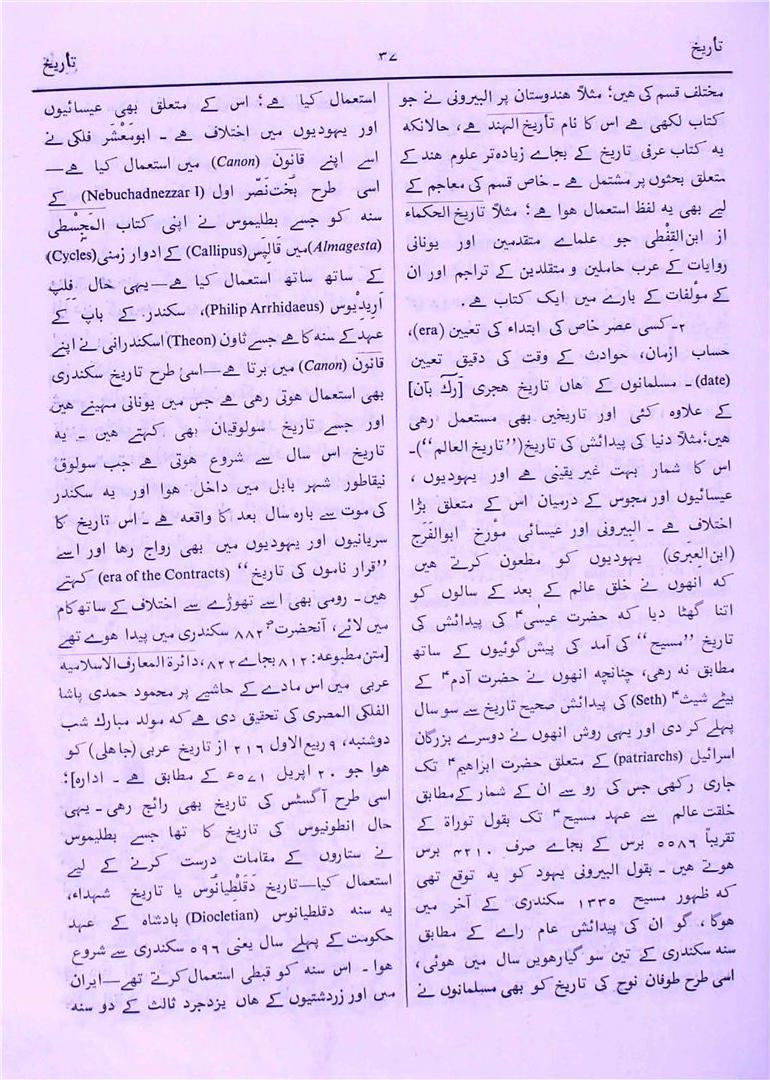 تأریخ
۳۷
تأریخ
مختلف قسم کی ھیں؛ مثلاً ھندوستان پر البیرونی نے جو
کتاب لکھی ھے اس کا نام تأریخ الہند ھے، حالانکہ
یہ کتاب عرفی تاریخ کے بجاے زیادہ تر علوم ھند کے
متعلق بحثوں پر مشتمل ھے ـ خاص قسم کی معاجم کے
لیے بھی یہ لفظ استعمال ھوا ھے؛ مثلاً تاریخ الحکماء
از ابن القفطی جو علماے متقدمین اور یونانی
روایات کے عرب حاملین و متقلدین کے تراجم اور ان
کے مؤلفات کے بارے میں ایک کتاب ھے .
۲ـ کسی عصر خاص کی ابتداء کی تعیین (era)،
حساب ازمان، حوادث کے وقت کی دقیق تعیین
(date) ـ مسلمانوں کے ھاں تاریخ ھجری [رک بآن]
کے علاوہ کئی اور تاریخیں بھی مستعمل رھی
ھیں؛ مثلاً دنیا کی پیدائش کی تاریخ (”تاریخ العالم“)ـ
اس کا شمار بہت غیر یقینی ھے اور یہودیوں ،
عیسائیوں اور مجوس کے درمیان اس کے متعلق بڑا
اختلاف ھے ـ البیرونی اور عیسائی مؤرخ ابوالفرج
(ابن العبری) یہودیوں کو مطعون کرتے ھیں
کہ انھوں نے خلق عالم کے بعد کے سالوں کو
اتنا گھٹا دیا کہ حضرت عیسٰی ؑ کی پیدائش کی
تاریخ ”مسیح“ کی آمد کی پیش گوئیوں کے ساتھ
مطابق نہ رھی، چنانچہ انھوں نے حضرت آدم ؑ کے
بیٹے شیث ؑ (Seth) کی پیدائش صحیح تاریخ سے سو سال
پہلے کر دی اور یہی روش انھوں نے دوسرے بزرگان
اسرائیل (patriarchs) کے متعلق حضرت ابراھیم ؑ تک
جاری رکھی جس کی رو سے ان کے شمار کے مطابق
خلقت عالم سے عہد مسیح ؑ تک بقول توراة کے
تقریباً ۵۵۸۶ برس کے بجاے صرف ۴۲۱۰ برس
ھوتے ھیں ـ بقول البیرونی یہود کو یہ توقع تھی
کہ ظہور مسیح ۱۳۳۵ سکندری کے آخر میں
ھوگا ، گو ان کی پیدائش عام راے کے مطابق
سنہ سکندری کے تین سو گیارھویں سال میں ھوئی،
اسی طرح طوفان نوح کی تاریخ کو بھی مسلمانوں نے
استعمال کیا ھے؛ اس کے متعلق بھی عیسائیوں
اور یہودیوں میں اختلاف ھے ـ ابومعشر فلکی نے
اسے اپنے قانون (Canon) میں استعمال کیا ھے—
اسی طرح بخت نصّر اول (Nebuchadnezzar I) کے
سنہ کو جسے بطلیموس نے اپنی کتاب المجسطی
(Almagesta) میں قالپس (Callipus) کے ادوار زمنی (Cycles)
کے ساتھ ساتھ استعمال کیا ھے—یہی حال فلپ
اریدیوس (Philip Arrhidaeus)، سکندر کے باپ کے
عہد کے سنہ کا ھے جسے ثاون (Theon) اسکندرانی نے اپنے
قانون (Canon) میں برتا ھے—اسی طرح تاریخ سکندری
بھی استعمال ھوتی رھی ھے جس میں یونانی مہینے ھیں
اور جسے تاریخ سولوقیان بھی کہتے ھیں ـ یہ
تاریخ اس سال سے شروع ھوتی ھے جب سولوق
نیقاطور شہر بابل میں داخل ھوا اور یہ سکندر
کی موت سے بارہ سال بعد کا واقعہ ھے ـ اس تاریخ کا
سریانیوں اور یہودیوں میں بھی رواج رھا اور اسے
”قرار ناموں کی تاریخ“ (era of the Contracts) کہتے
ھیں ـ رومی بھی اسے تھوڑے سے اختلاف کے ساتھ کام
میں لائے، آنحضرت ؐ ۸۸۲ سکندری میں پیدا ھوے تھے
[متن مطبوعہ: ۸۱۲ بجاے ۸۲۲، دائرة المعارف الاسلامیہ
عربی میں اس مادے کے حاشیے پر محمود حمدی پاشا
الفلکی المصری کی تحقیق دی ھے کہ مولد مبارک شب
دوشنبہ، ۹ ربیع الاول ۲۱۶ از تاریخ عربی (جاھلی) کو
ھوا جو ۲۰ اپریل ۵۷۱ء کے مطابق ھے ـ ادارہ]؛
اسی طرح آگسٹس کی تاریخ بھی رائج رھی ـ یہی
حال انطونیوس کی تاریخ کا تھا جسے بطلیموس
نے ستاروں کے مقامات درست کرنے کے لیے
استعمال کیا—تاریخ دقلطیانوس یا تاریخ شہداء،
یہ سنہ دقلطیانوس (Diocletian) بادشاہ کے عہد
حکومت کے پہلے سال یعنی ۵۹۶ سکندری سے شروع
ھوا ـ اس سنہ کو قبطی استعمال کرتے تھے—ایران
میں اور زردشتیوں کے ھاں یزدجرد ثالث کے دو سنہ